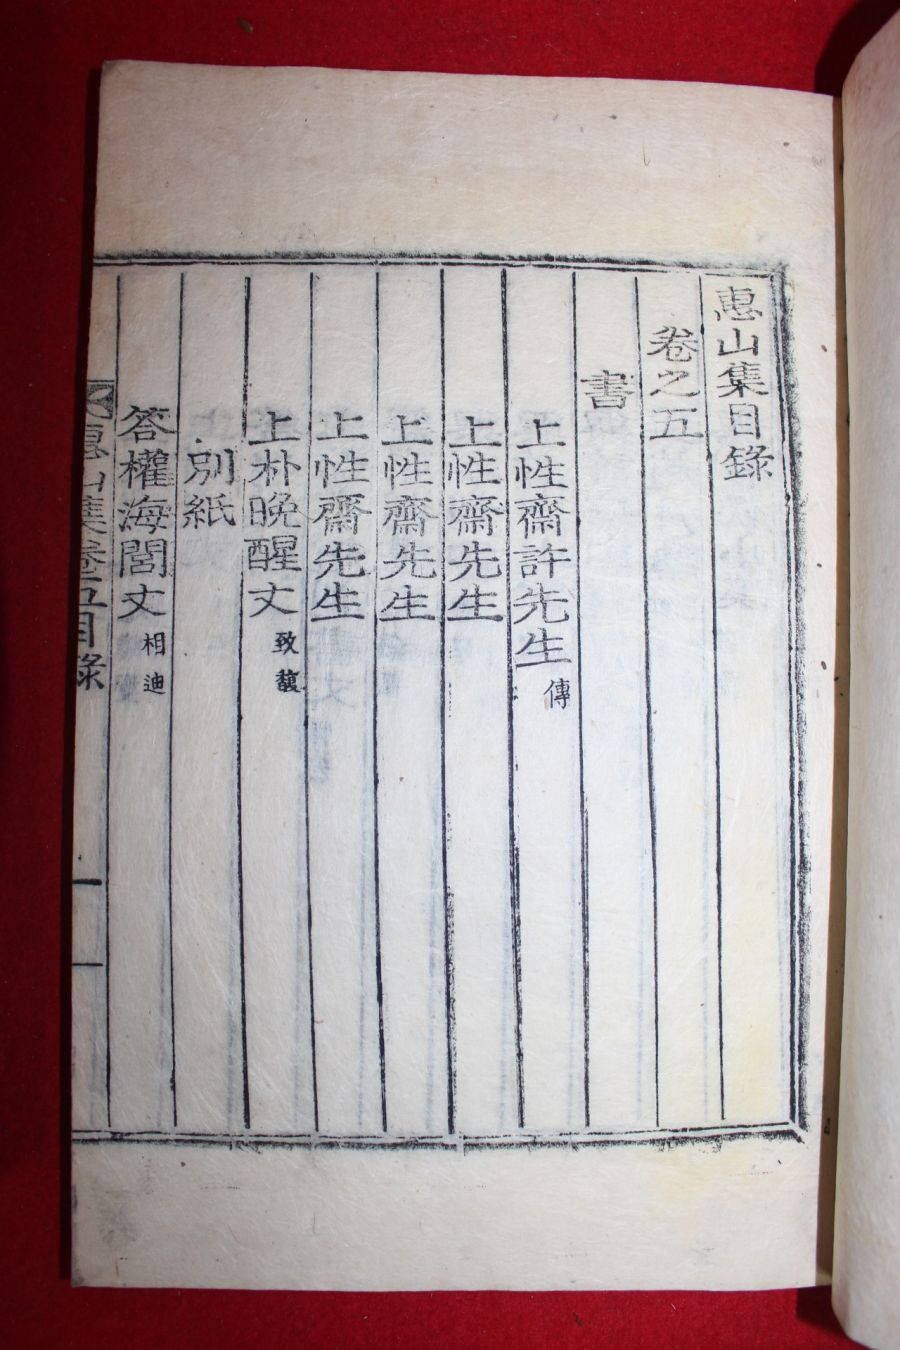 惠山集目錄
卷之五
書
上性齋許先生 傳
上性齋先生
上性齋先生
上性齋先生
上朴晩醒丈 致馥
別紙
答權海閭丈 相迪
惠山集卷五目錄